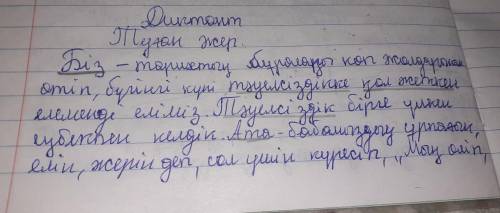 Диктант
Туған жер.
Біз – тарихтың бұралаңы көп жолдарынан
өтіп, бүгінгі күні тәуелсіздікке қол жеткен
елміз. Тәуелсіздік бірге үлкен
еңбекпен келдік. Ата-бабамыздың ұрпағын,
елін, жерін деп, сол үшін күресіп, „Мың өліп,